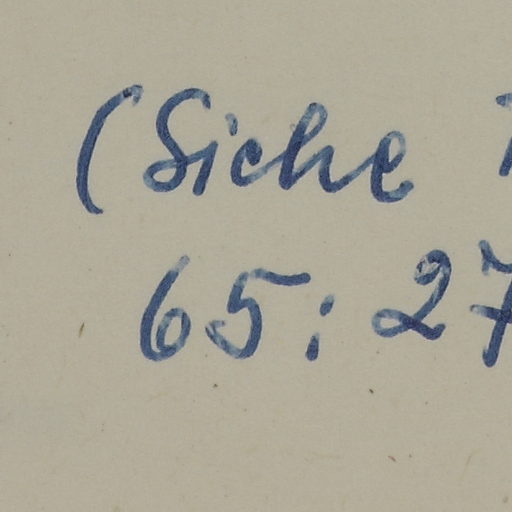 (Siehe
65: 27